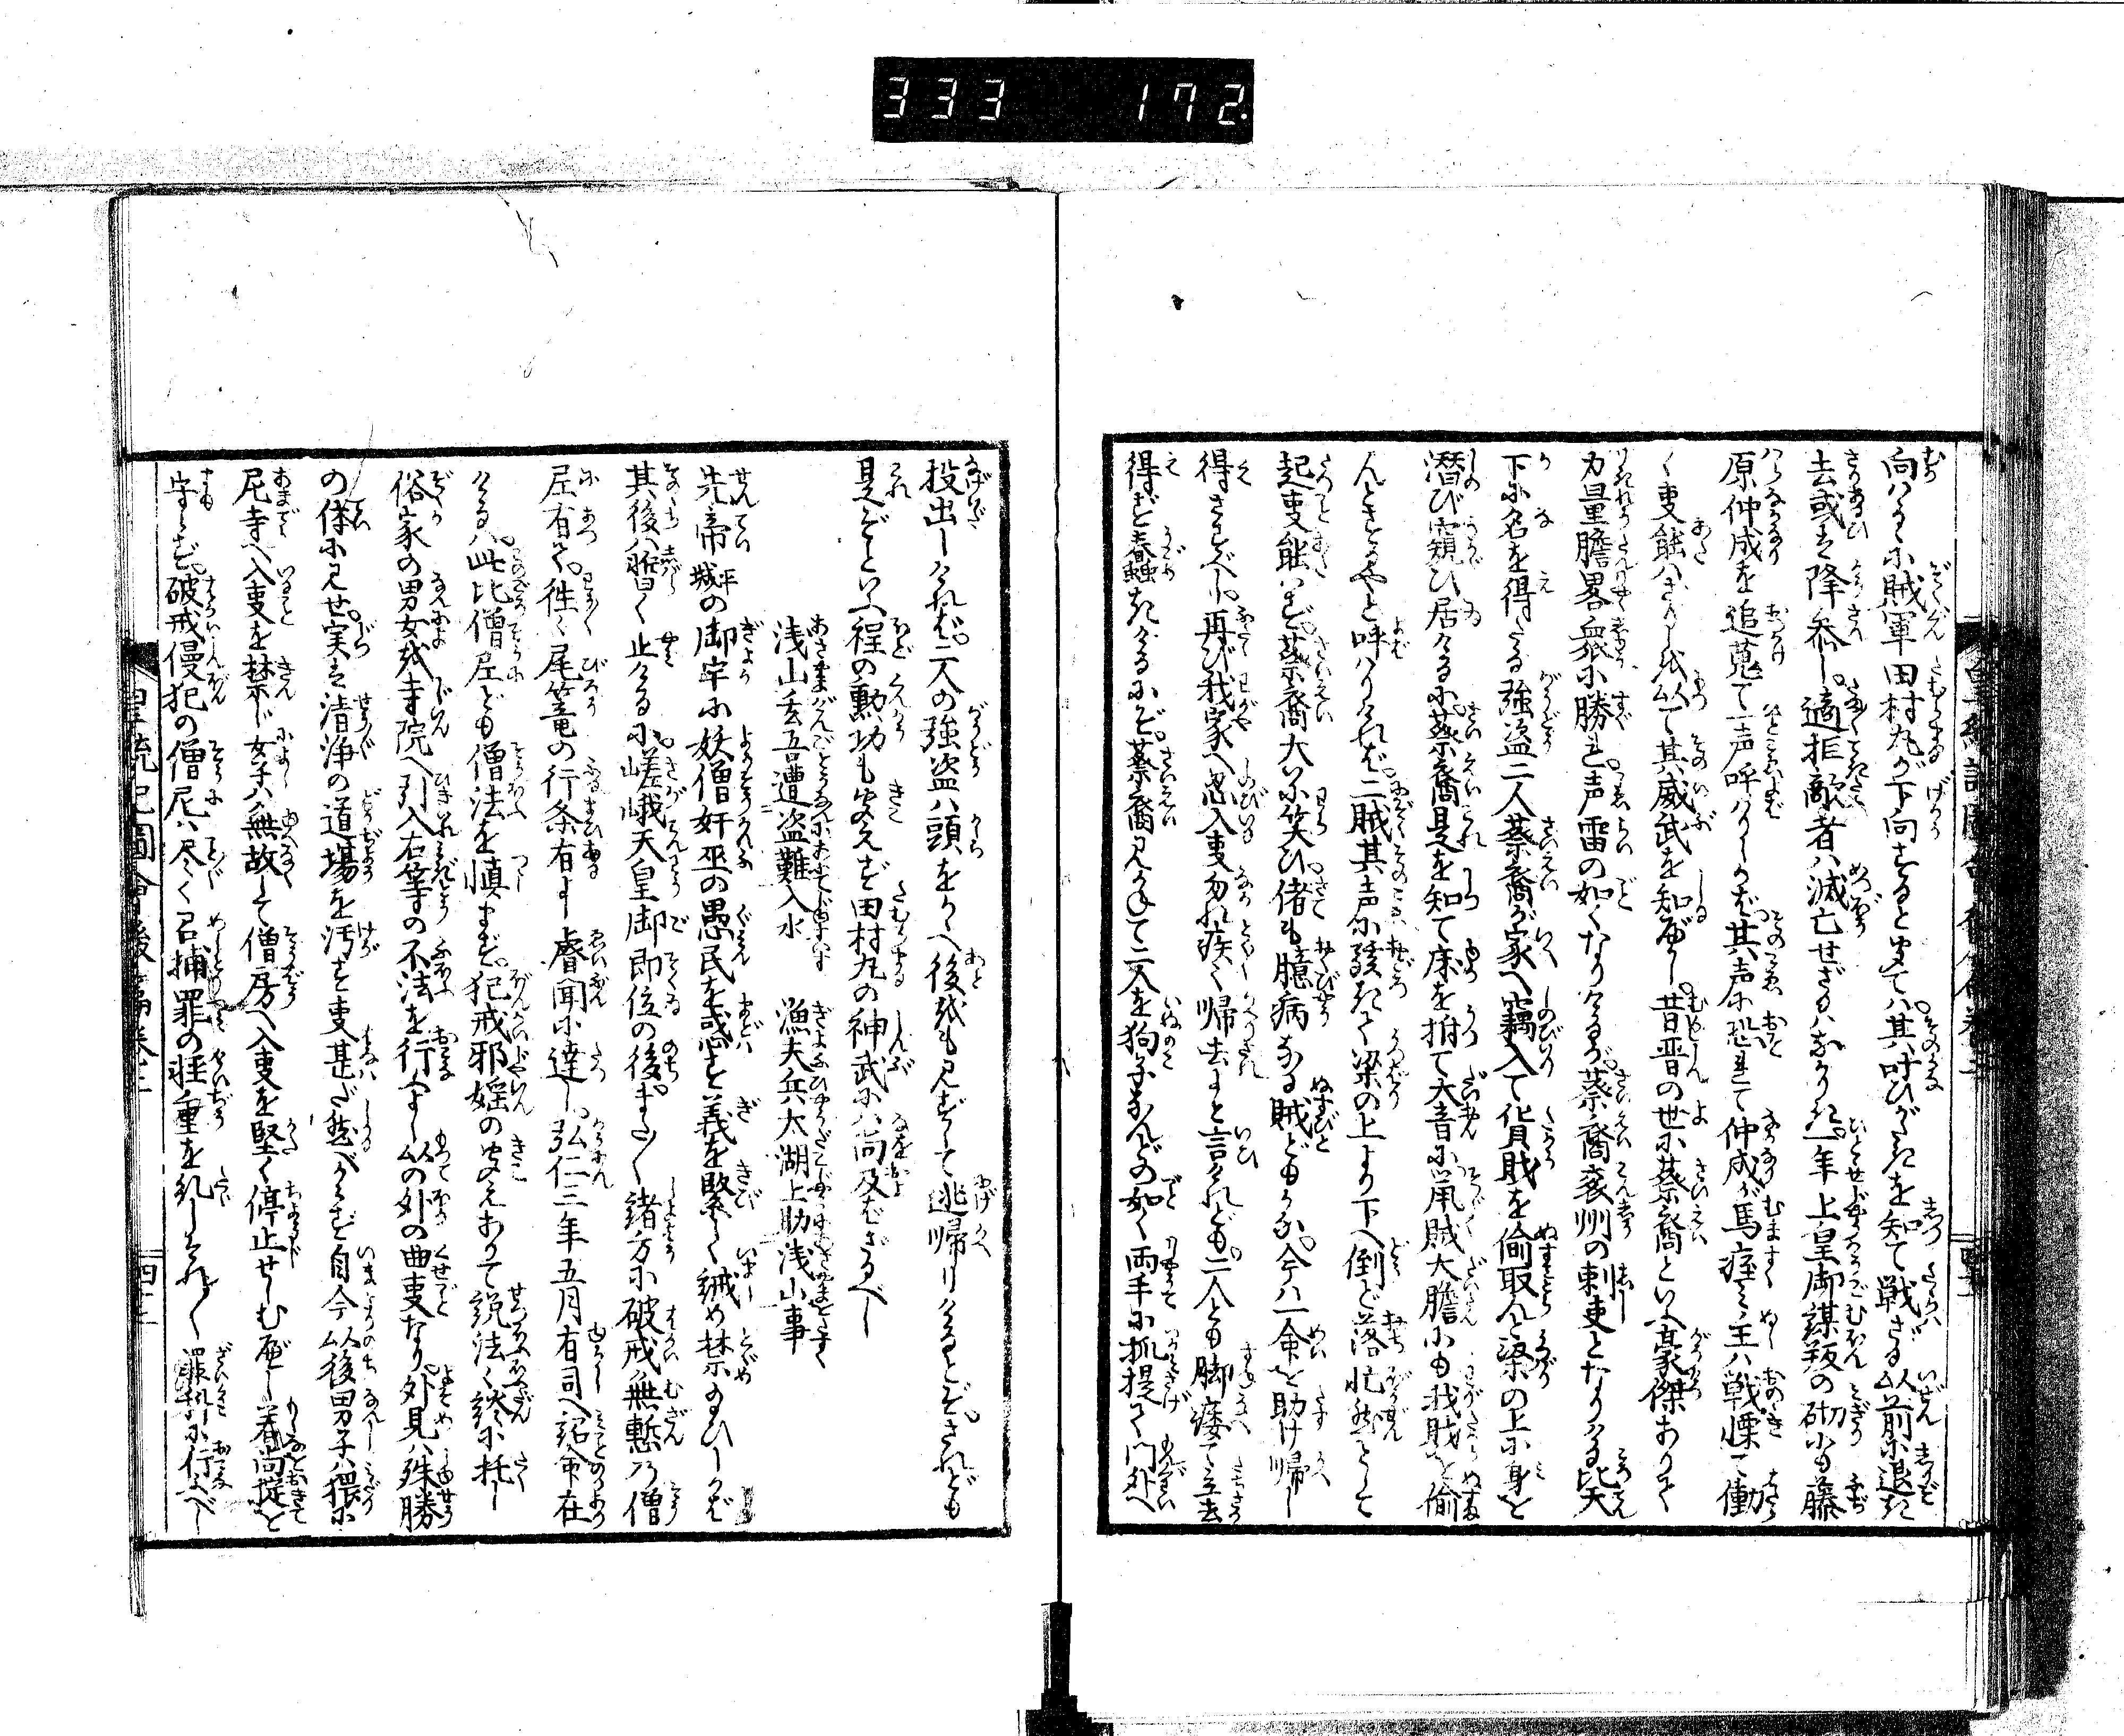 333 172
向ハるゝに賊軍田村丸が下向すると聞てハ其呼びがたきを知て戦ざる以前に退き
去或は降参し適拒敵者ハ滅亡せざるハなかりき一年上皇御謀叛の砌にも藤
原仲成を追蒐て一声呼ハりしかば其声に恐れて仲成が馬痓ミ主ハ戦慄て働
く事能ハざりしを以て其威武を知べし昔晋の世に蔡裔といふ豪傑ありて
力量膽畧衆に勝れ声雷の如くなりけるが蔡裔兗州の刺史となりける比天
下に名を得たる強盗二人蔡裔が家へ竊入て貨財を偸取んと梁の上に身を
潜び窺ひ居けるに蔡裔是を知て床を拊て大音に鼠賊大膽にも我財を偸
んとするやと呼ハりければ二賊其声に駭きて梁の上より下へ倒ど落忙然として
起事能ハず蔡裔大に笑ひ偖も臆病なる賊どもかな今ハ一命を助け帰し
得さすべし再び我家へ忍入事勿れ疾く帰去よと言けれども二人とも脚痿て立去
得ず春蠢きけるにぞ蔡裔見かねて二人を狗子なんどの如く両手に抓提て門外へ
投出しければ二人の強盗ハ頭をかゝへ後をも見ずして逃帰りけるとぞされども
是ぞといふ程の勲功も聞えず田村丸の神武にハ尚及ばざるべし
浅山玄吾遭盗難入水 漁夫兵太湖上助浅山事
先帝平城の御宇に妖僧奸巫の愚民を惑すを義を緊しく緘め禁め給ひしかば
其後ハ暫く止ける小嵯峨天皇御即位の後また〳〵緒方に破戒無慙の僧
尼有て往々尾篭の行条有よし睿聞に達し弘仁二年五月有司へ詔命在
けるハ此比僧尼ども僧法を慎まず犯戒邪婬の聞えありて説法く縁に托し
俗家の男女を寺院へ引入右等の不法を行ふよし以の外の曲事なり外見ハ殊勝
の体に見せ実は清浄の道場を汚す事甚だ然べからず自今以後男子ハ猥に
尼寺へ入事を禁じ女子ハ無故して僧房へ入事を堅く停止せしむべし若尚掟を
守らず破戒侵犯の僧尼ハ尽く召捕罪の軽重を糺しそれ〳〵罪科に行ふべし
皇統記圖會後篇巻之